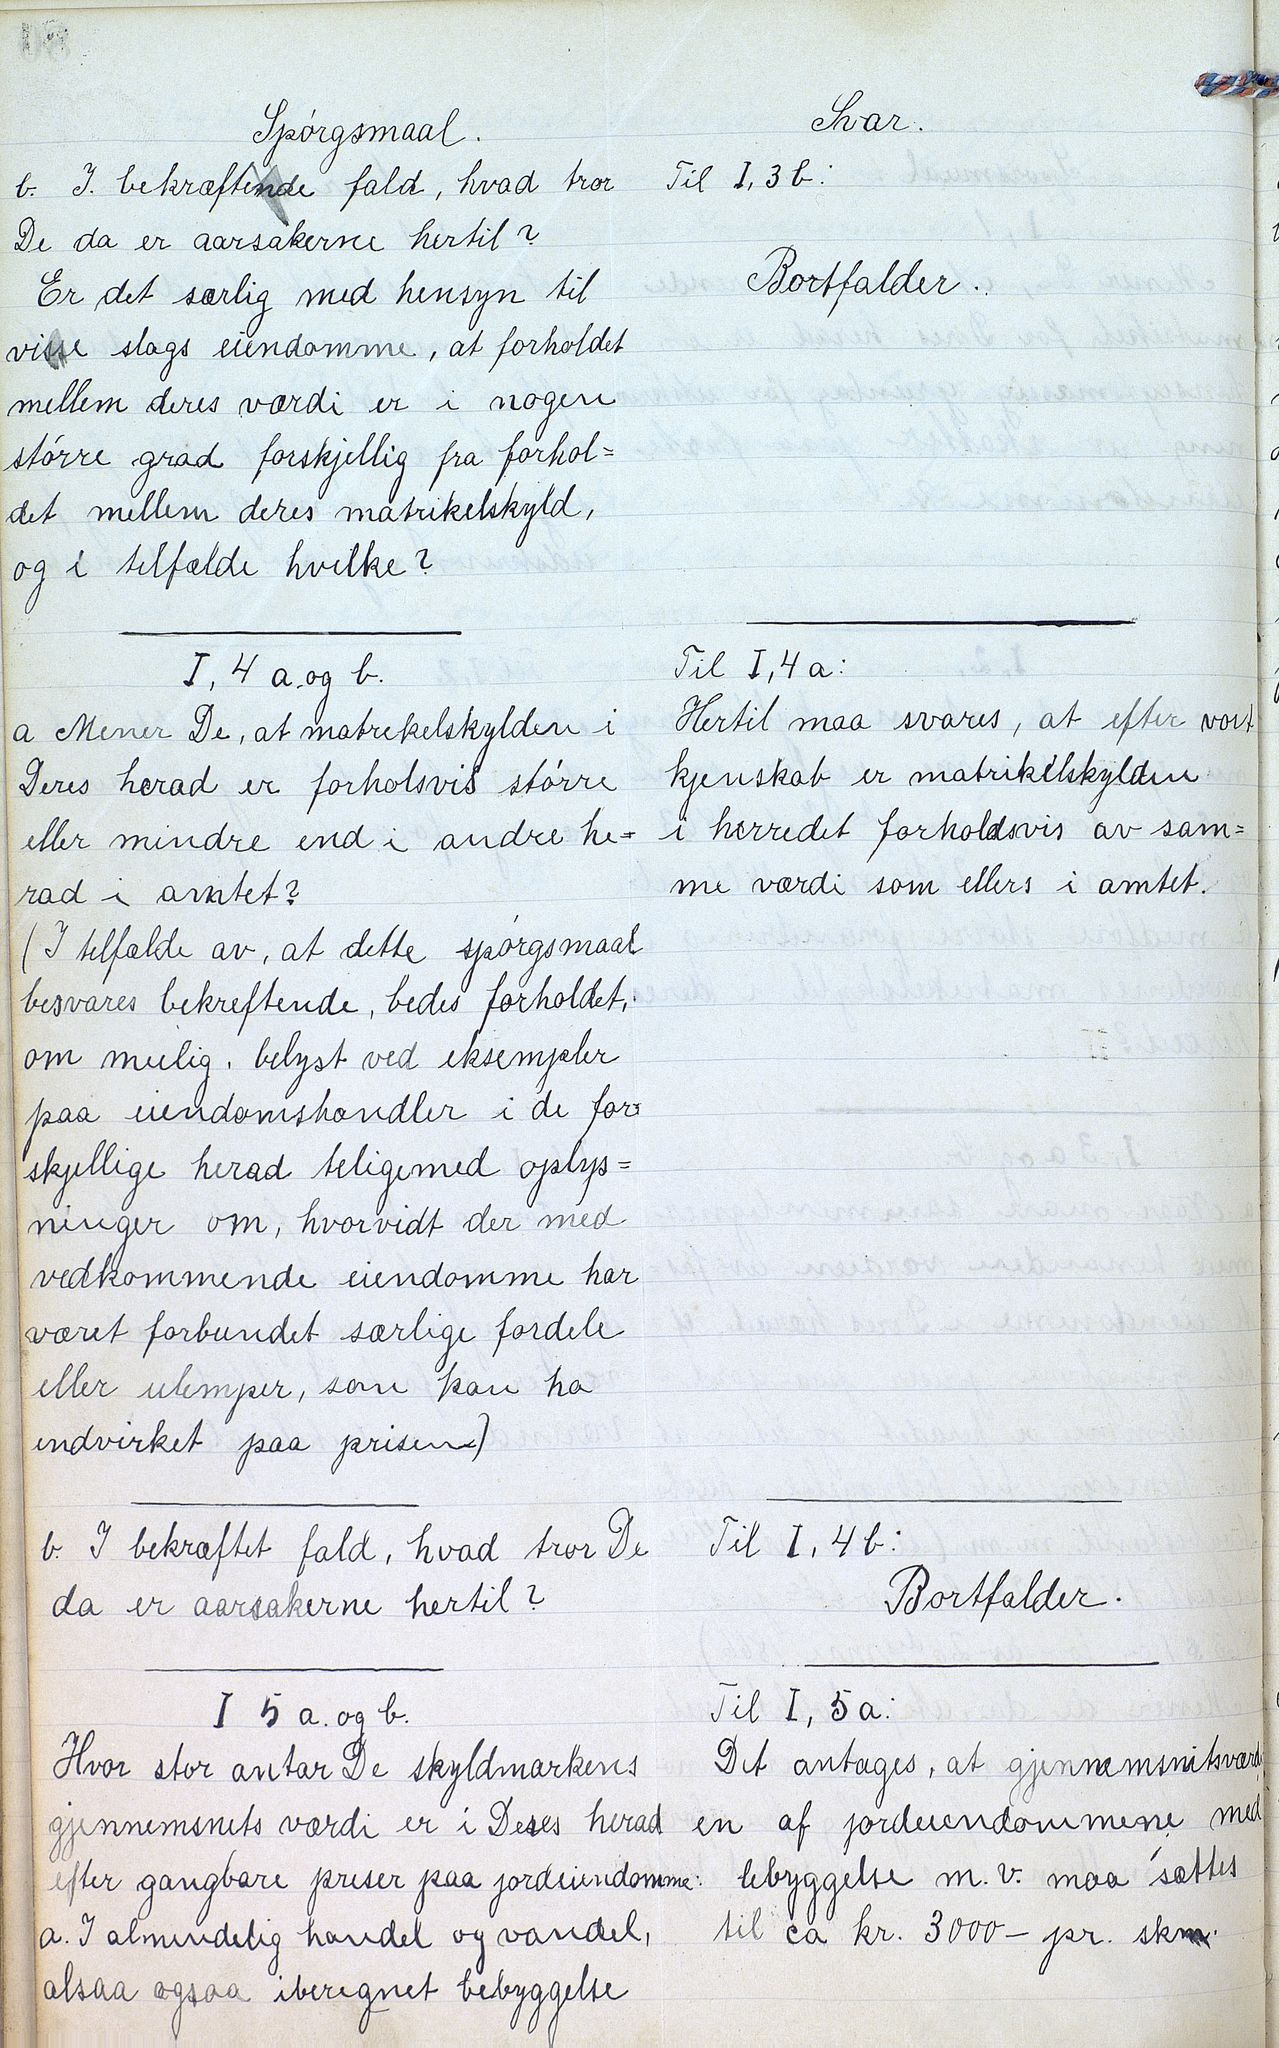 Spórgsmaal.
b. I. bekræftende fald, hvad tror
De da er aarsakerne hertil?
Er det særlig med hensyn til
visse slags eiendomme, at forholdet
mellem deres værdi er i nogen
større grad forskjellig fra forhol=
det mellem deres matrikelskyld,
og i telfælde hvilke?
I, 4 a. og b.
a Mener De, at matrekelskylden i
Deres herad er forholsvis større
eller mindre end i andre he=
rad i amtet?
(I telfælde av, at dette spórgsmaal
besvares bekreftende, bedes forholdet,
om meilig, belyst ved eksempler
paa eiendomshandler i de for=
skjellige herad teligemed oplys=
ninger om, hvorvidt der med
vedkommende eiendomme har
været forbundet særlige fordele
eller ulemper, som kan ha
indvirket paa prisen)
b. I bekræftet fald, hvad tror De
da er aarsakerne hertil?
I 5 a. og b.
Hvor stor antar De skyldmarkens
gjennemsnets værdi er i Deres herad
efter gangbare priser paa jordeiendomme:
a. I almindelig handel og vandel,
alsaa ogsaa iberegnet bebyggelse
Svar.
Til I, 3 b:
Bortfalder.
Til I, 4 a:
Hertil maa svares, at efter vort
kjenskab er matrikelskylden
i herredet forholdsvis av sam=
me værdi som ellers i amtet.
Til I, 4 b:
Bortfalder.
Til I, 5 a:
Det antages, at gjennemsnitsværdi
en af jordeiendommene med
bebyggelse m. v. maa sættes
til ca kr. 3000 – pr. skm.